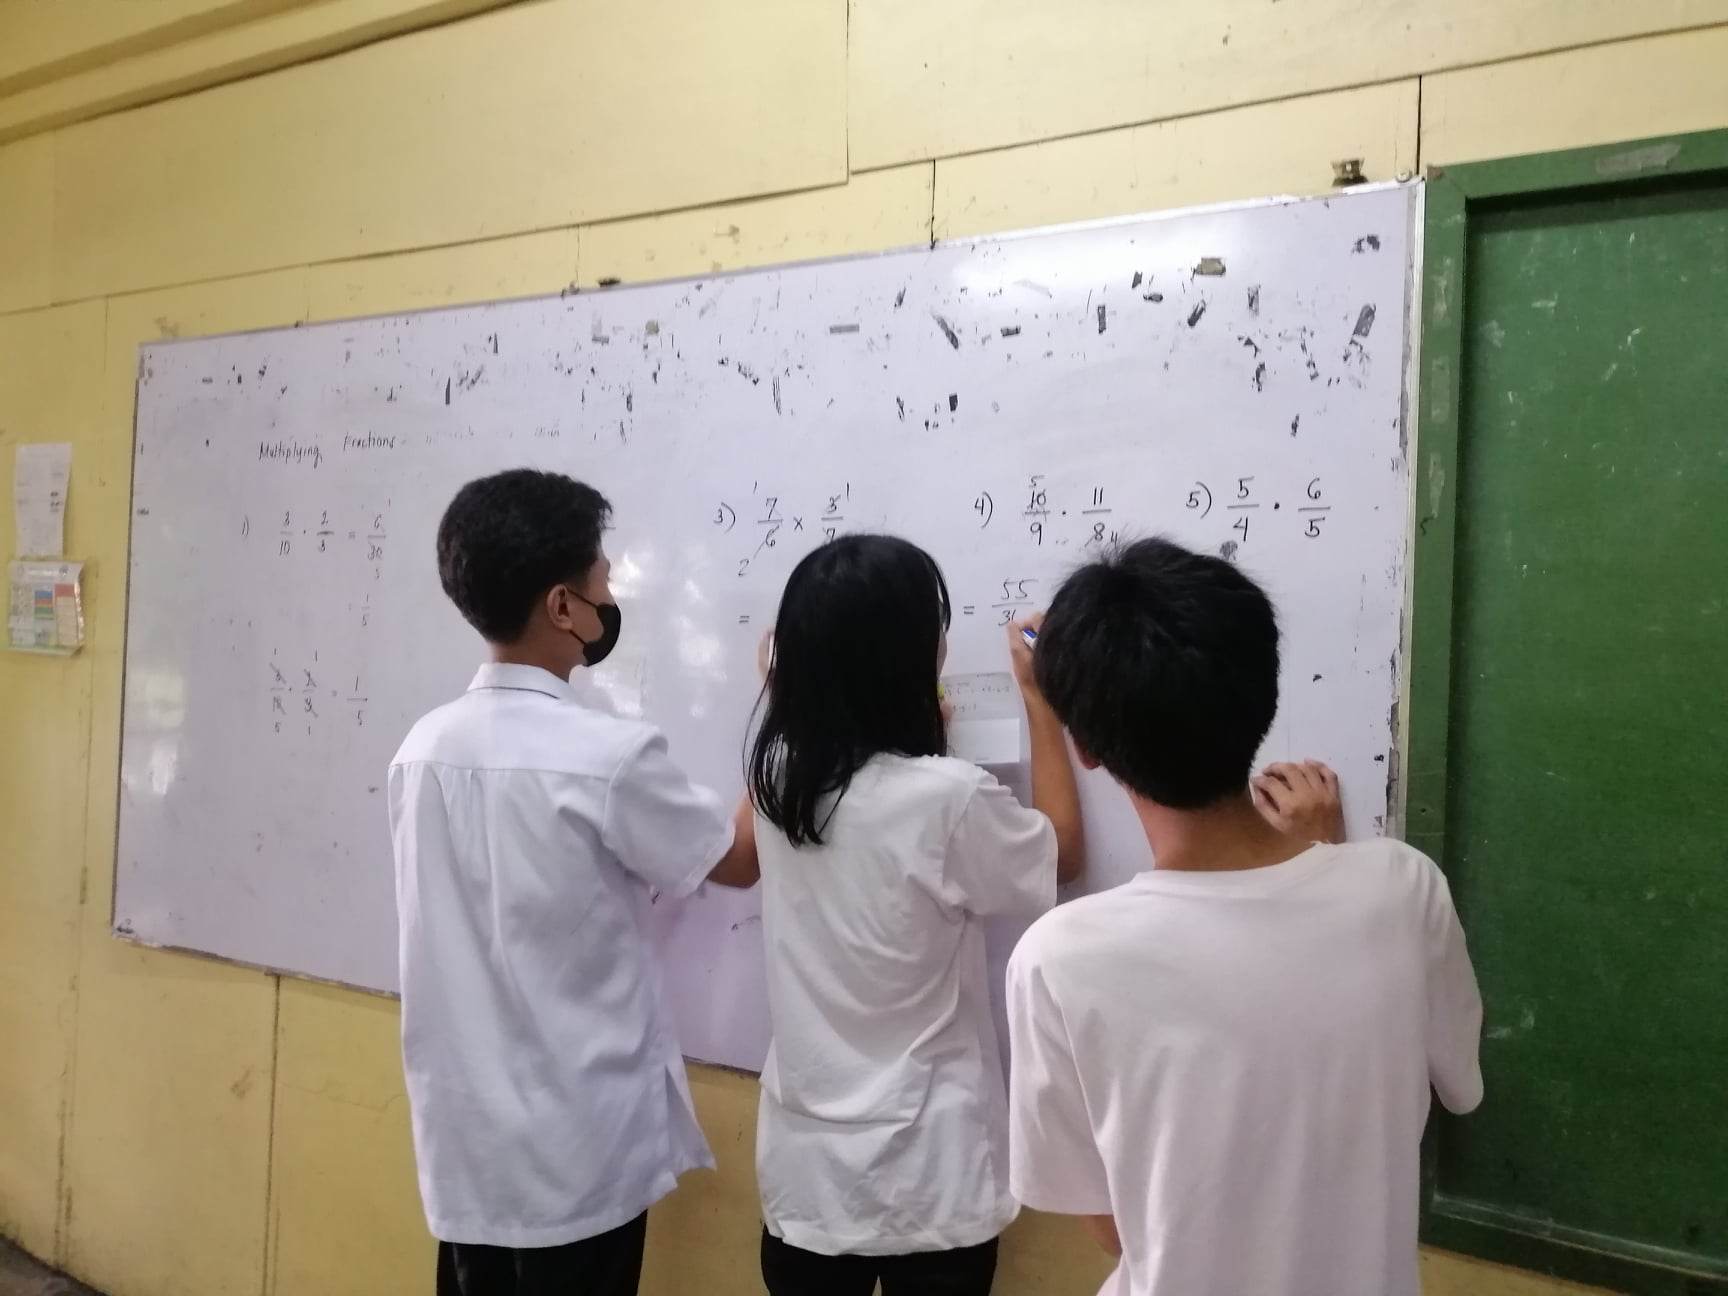 Multiplying Fractions
1) 3/10 · 2/3 = 6/30 1 5
= 1/5
1 1
3/10 · 2/3 = 1/5
5 1
3) 1 7/6 × 3/7 1
2
=
4) 5 10/9 · 11/8 4
= 55/36
5) 5/4 · 6/5